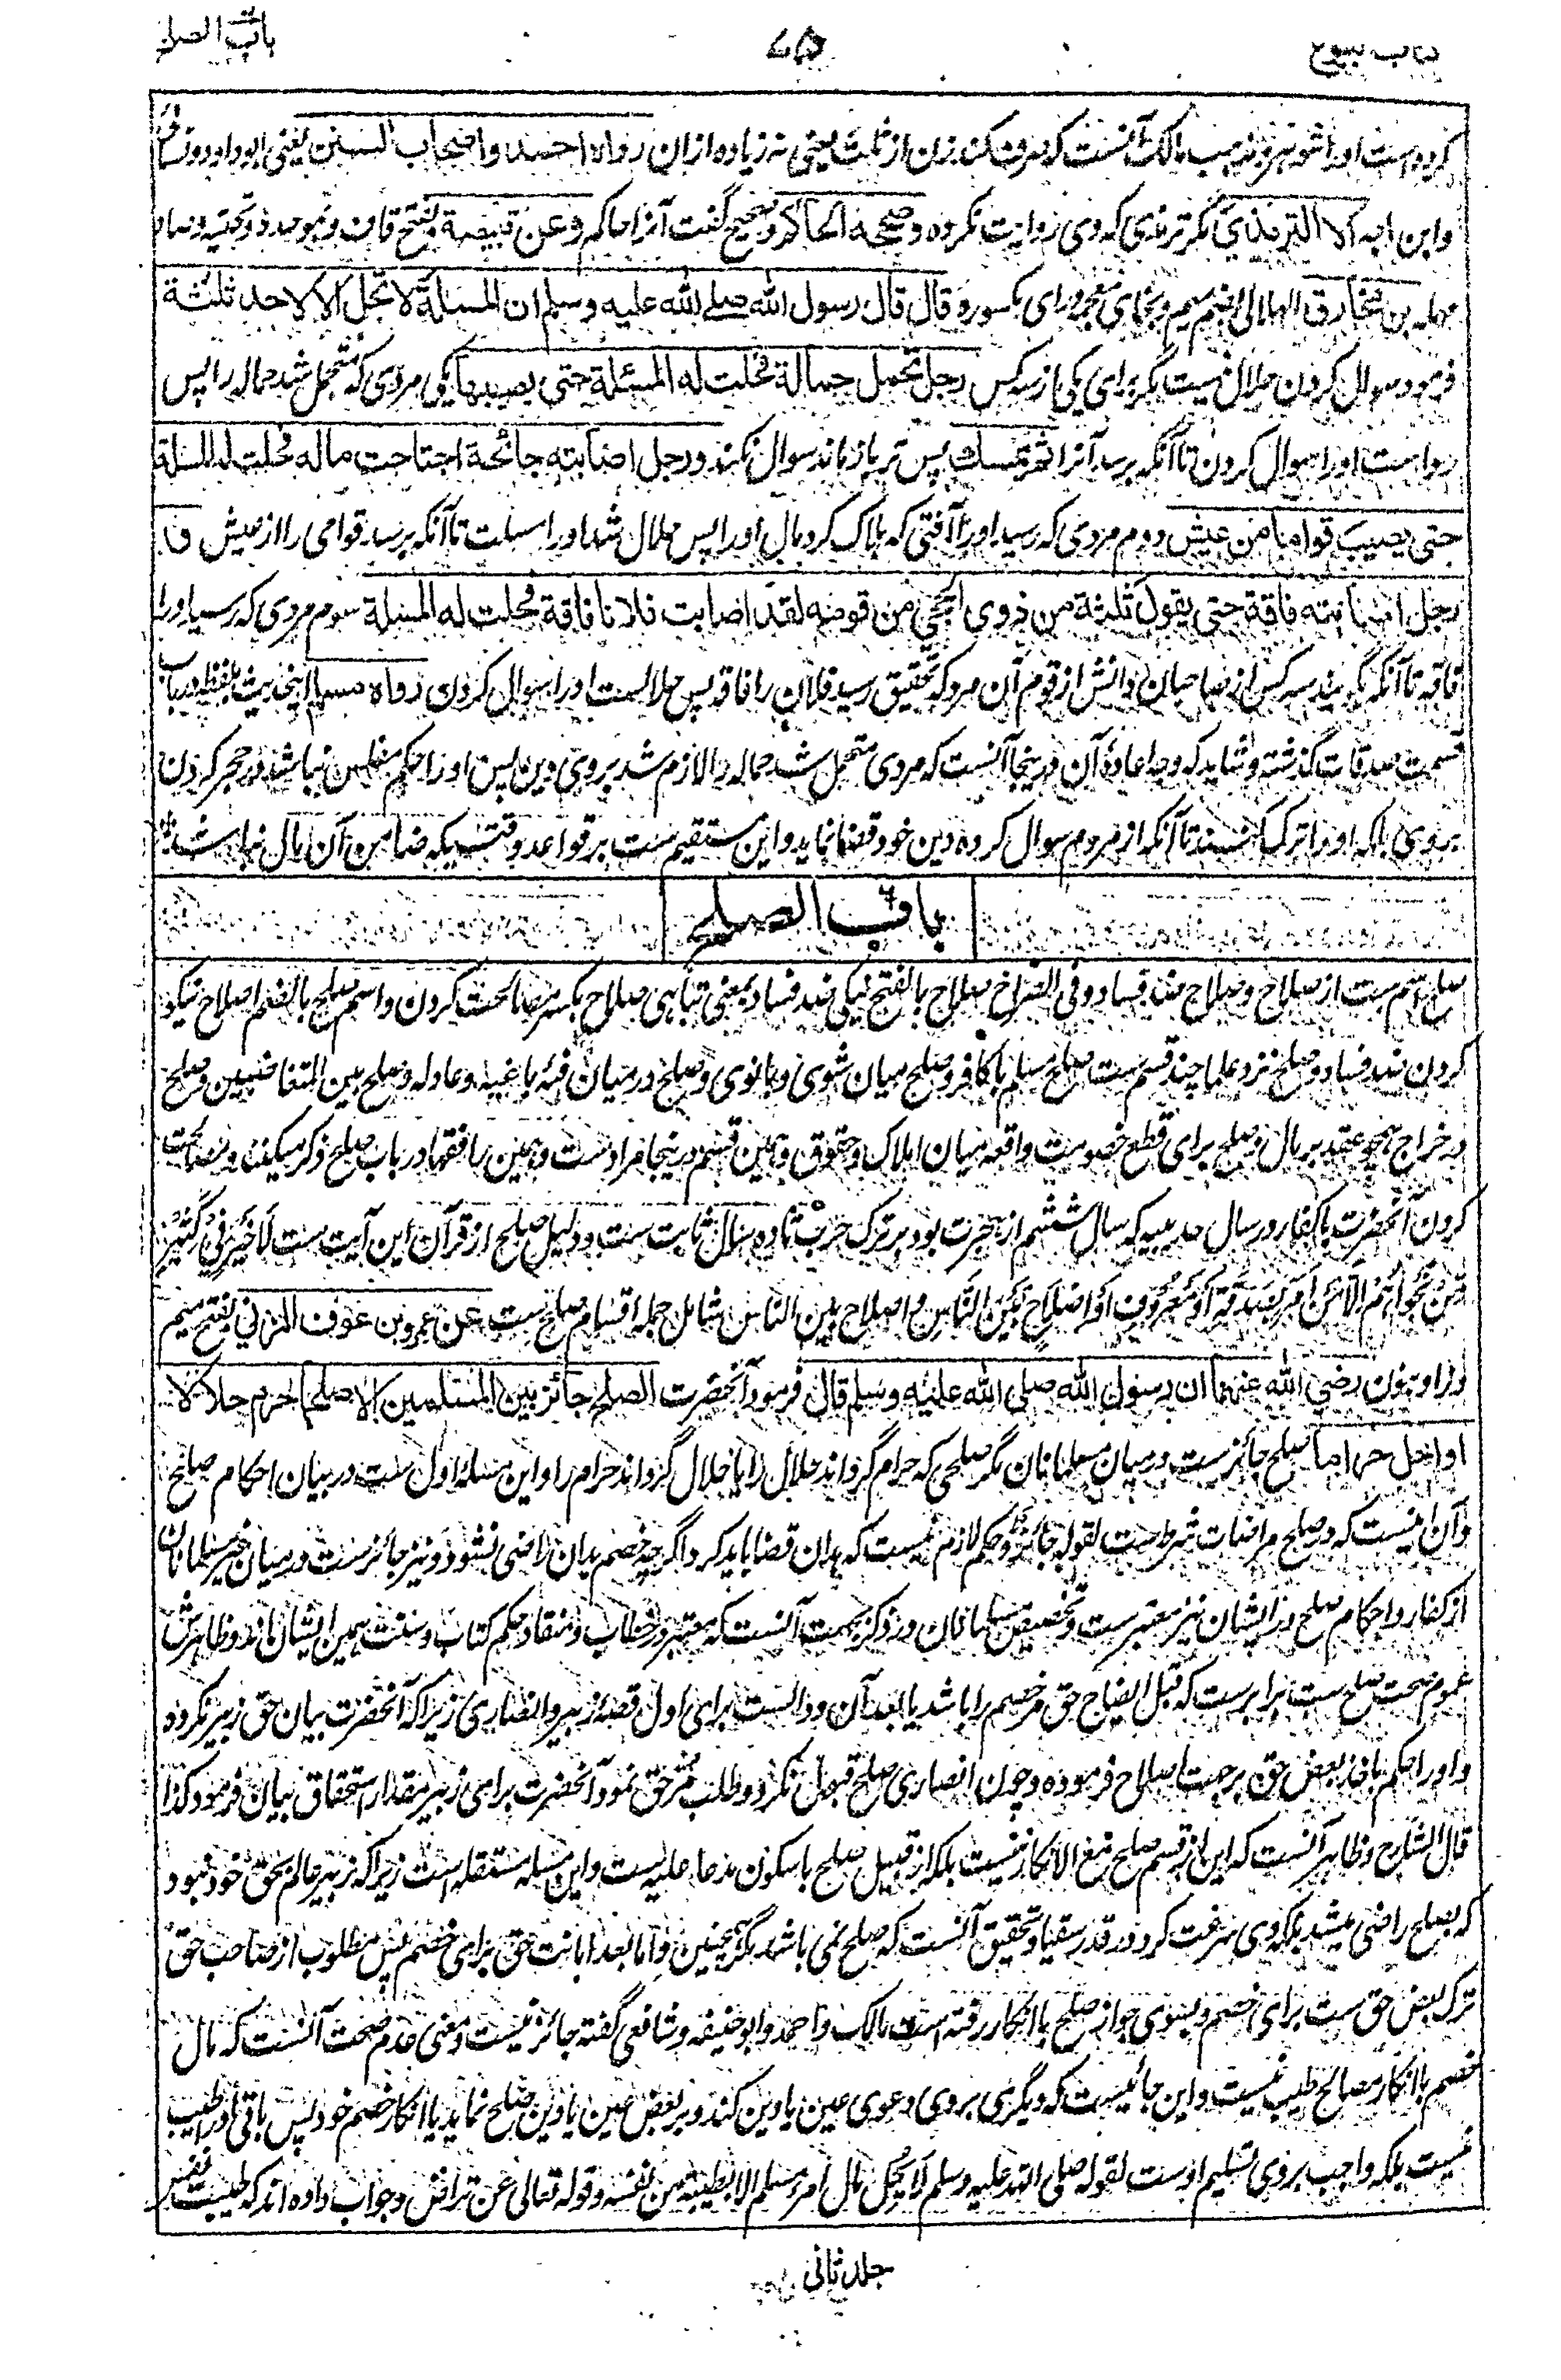 کتاب بیوع ۷۵ باب الصلح
کرده است او را شوهر و مذهب مالک آنست که صرف کند زن از ثلث یعنی نه زیاده ازان رواه احمد واصحاب السنن یعنی ابوداود ونسائی
وابن ماجه الا الترمذی مگر ترمذی که وی روایت نکرده وصححه الحاکم وصحیح گفت آنرا حاکم وعن قبیصة بفتح قاف وبموحده وتحتیه وصاد
مهمله بن مخارق الهلالی بضم میم وبخای معجمه ورای مکسوره قال قال رسول الله صلے الله علیه وسلم ان المسئلة لا تحل الا لاحد ثلثة
فرمود سوال کردن حلال نیست مگر برای یکی از سه کس رجل تحمل حمالة فحلت له المسئلة حتی یصیبها یکی مردی که متحمل شد حماله را پس
رواست او را سوال کردن تا آنکه برسد آنرا ثم یمسك پس تر باز ماند سوال نکند ورجل اصابته جائحة اجتاحت ماله فحلت له المسئلة
حتی یصیب قواما من عیش دوم مردی که رسید او را آفتی که هلاک کرد مال او را پس حلال شد او را مسئلت تا آنکه برسد قوامی را از عیش و
رجل اصابته فاقة حتی یقول ثلثة من ذوی الحجی من قومه لقد اصابت فلانا فاقة فحلت له المسئلة سوم مردی که رسید او را
فاقه تا آنکه گویند سه کس از صاحبان دانش از قوم آن مرد که تحقیق رسید فلان را فاقه پس حلالست او را سوال کردن رواه مسلم اینحدیث بلفظه در باب
قسمت صدقات گذشته وشاید که وجه اعادهٔ آن درینجا آنست که مردی متحمل شد حماله را لازم شد بروی دین پس او را حکم مفلس نباشد در حجر کردن
بروی بلکه او را ترک کنند تا آنکه از مردم سوال کرده دین خود قضا نماید واین مستقیم ست بر قواعد وقتیکه ضامن آن مال نباشد
باب الصلح
صلح اسم ست از صلاح وصلاح ضد فساد وفی الصراح صلاح بالفتح نیکی ضد فساد بمعنی تباهی صلاح بکسر مصالحت کردن واسم صلح بالضم اصلاح نیکو
کردن ضد فساد وصلح نزد علما چند قسم ست صلح مسلم با کافر وصلح میان شوی وبانوی وصلح درمیان فئه باغیه وعادله وصلح بین المتغاضبین وصلح
در جراح همچو عفو بر مال وصلح برای قطع خصومت واقعه میان املاک وحقوق وهمین قسم درینجا مرادست وهمین را فقها در باب صلح ذکر میکنند ومصالحت
کردن آنحضرت با کفار در سال حدیبیه که سال ششم از هجرت بود بر ترک حرب تا ده سال ثابت ست ودلیل صلح از قرآن این آیت ست لَا خَیْرَ فِیْ کَثِیْرٍ
مِّنْ نَّجْوَاهُمْ اِلَّا مَنْ اَمَرَ بِصَدَقَةٍ اَوْ مَعْرُوْفٍ اَوْ اِصْلَاحٍ بَیْنَ النَّاسِ واصلاح بین الناس شامل جمله اقسام صلح ست عن عمرو بن عوف المزنی بفتح میم
وزا ونون رضی الله عنهما ان رسول الله صلی الله علیه وسلم قال فرمود آنحضرت الصلح جائز بین المسلمین الا صلحا حرم حلالا
او احل حراما صلح جائزست درمیان مسلمانان مگر صلحی که حرام گرداند حلال را یا حلال گرداند حرام را واین مسئلهٔ اول ست در بیان احکام صلح
وآن اینست که در صلح مراضات شرط ست لقوله جائز وحکم لازم نیست که بدان قضا باید کرد اگرچه خصم بدان راضی نشود ونیز جائزست درمیان غیر مسلمانان
از کفار واحکام صلح در ایشان نیز معتبرست وتخصیص مسلمانان در ذکر بجهت آنست که معتبر در خطاب ومنقاد حکم کتاب وسنت همین ایشان اند وظاهرش
عموم صحت صلح ست برابرست که قبل ایضاح حق مر خصم را باشد یا بعد آن ودالست برای اول قصهٔ زبیر وانصاری زیراکه آنحضرت بیان حق زبیر نکرده
واو را حکم باخذ بعض حق بر جهت اصلاح فرموده وچون انصاری صلح قبول نکرد وطلب مر حق نمود آنحضرت برای زبیر مقدار استحقاق بیان فرمود کذا
قال الشارح وظاهر آنست که این از قسم صلح مع الانکار نیست بلکه از قبیل صلح با سکون مدعا علیه ست واین مسئله مستقله است زیراکه زبیر عالم بحق خود نبود
که بصلح راضی میشد بلکه وی سرعت کرد در قدر سقیا وتحقیق آنست که صلح نمی باشد مگر همچنین واما بعد ابانت حق برای خصم پس مطلوب از صاحب حق
ترک بعض حق ست برای خصم وبسوی جواز صلح با انکار رفته است مالک واحمد وابوحنیفه وشافعی گفته جائز نیست ومعنی عدم صحت آنست که مال
خصم با انکار مصالح طیب نیست واین جائیست که دیگری بروی دعوی عین یا دین کند وبر بعض عین یا دین صلح نماید با انکار خصم خود پس باقی او را طیب
نیست بلکه واجب بروی تسلیم اوست لقوله صلی الله علیه وسلم لا یحل مال امرء مسلم الا بطیبة من نفسه وقوله تعالی عن تراض وجواب داده اند که طیبت نفس
جلد ثانی